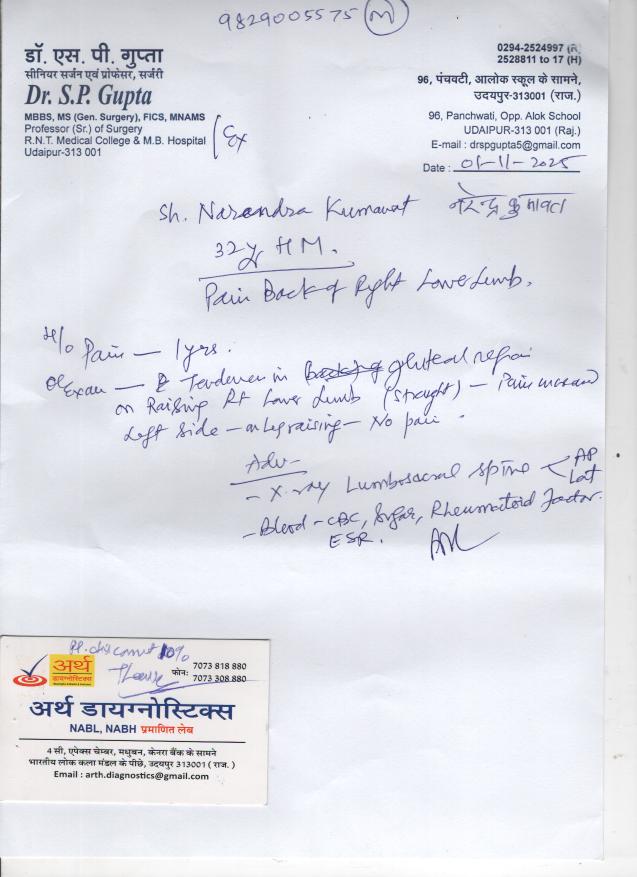 9829005575 (M)
डॉ. एस. पी. गुप्ता
सीनियर सर्जन एवं प्रोफेसर, सर्जरी
Dr. S.P. Gupta
MBBS, MS (Gen. Surgery), FICS, MNAMS
Professor (Sr.) of Surgery
R.N.T. Medical College & M.B. Hospital
Udaipur-313 001
Ex
0294-2524997 (R)
2528811 to 17 (H)
96, पंचवटी, आलोक स्कूल के सामने,
उदयपुर-313001 (राज.)
96, Panchwati, Opp. Alok School
UDAIPUR-313 001 (Raj.)
E-mail : drspgupta5@gmail.com
Date : 01-11-2025
Sh. Narendra Kumawat नरेन्द्र कुमावत
32y HM.
Pain Back of Right Lower Limb.
H/o Pain — 1 yrs.
O/Exam — Tenderness in gluteal region
on Raising Rt Lower Limb (Straight) — Pain increased
Left Side — on leg raising — No pain.
Adv-
- X-ray Lumbosacral Spine < AP
Lat
- Blood - CBC, Sugar, Rheumatoid Factor.
ESR.
Pl. discount 10%
Please
अर्थ
डायग्नोस्टिक्स
फोन: 7073 818 880
7073 308 880
अर्थ डायग्नोस्टिक्स
NABL, NABH प्रमाणित लेब
4 सी, एपेक्स चेम्बर, मधुबन, केनरा बैंक के सामने
भारतीय लोक कला मंडल के पीछे, उदयपुर 313001 ( राज. )
Email : arth.diagnostics@gmail.com